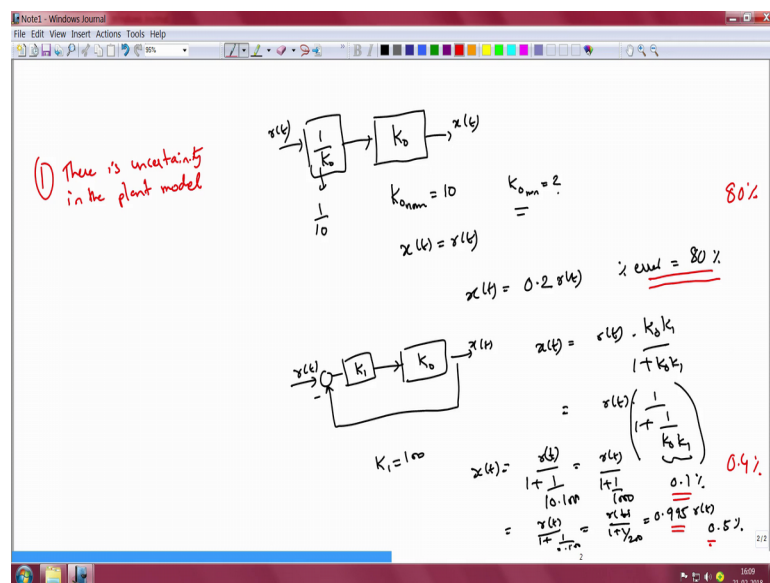 Note1 - Windows Journal
File Edit View Insert Actions Tools Help
95%
① There is uncertainity
in the plant model
r(t)
1/K₀
K₀
x(t)
1/10
K₀ₙₒₘ = 10
x(t) = r(t)
80%
x(t) = 0.2 r(t)
% error = 80 %
r(t)
-
K₁
K₀
x(t)
K₁ = 100
x(t) = r(t) . K₀K₁ / 1 + K₀K₁
= r(t) ( 1 / 1 + 1/K₀K₁ )
x(t) = r(t) / 1 + 1/10.100 = r(t) / 1 + 1/1000
0.1 %
0.4 %
= 0.995 r(t)
0.5 %
2
2/2
16:09